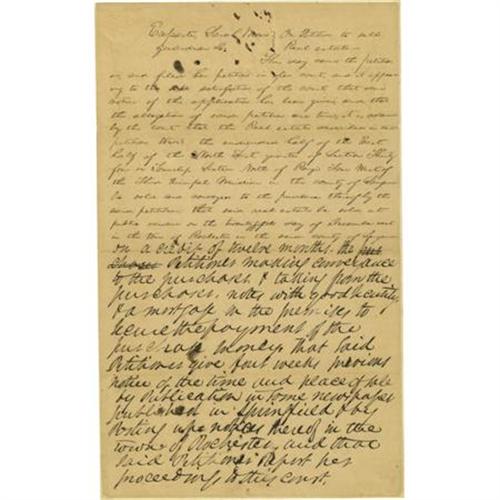 Exparte Sarah On Petition to sell
Guardian &c. Real estate
This day came the petitioner
and filed her petition in open court, and it appearing
to the satisfaction of the court that due
notice of this application has been given and that
the allegations of said petition are true, it is ordered
by the court that the Real estate described in said
petition the undivided half of the West
half of the North East quarter of Section Thirty
four in Township Sixteen North of Range Four West of
the Third Principal Meridian in the county of Sangamon
be sold and conveyed to the purchaser thereof by the
said petitioner that said real estate be sold at
public vendue on the day of
in the town of Rochester in the said county of Sangamon
on a credit of twelve months, the pur
chaser Petitioner making conveyance
to the purchaser & taking from the
purchaser, notes with good security,
& a mortgage on the premises to
secure the payment of the
purchase money, that said
Petitioner give four weeks previous
notice of the time and place of sale
by publication in some newspaper
published in Springfield & by
posting up notices thereof in the
town of Rochester, and that
said Petitioner report her
proceedings to this court.